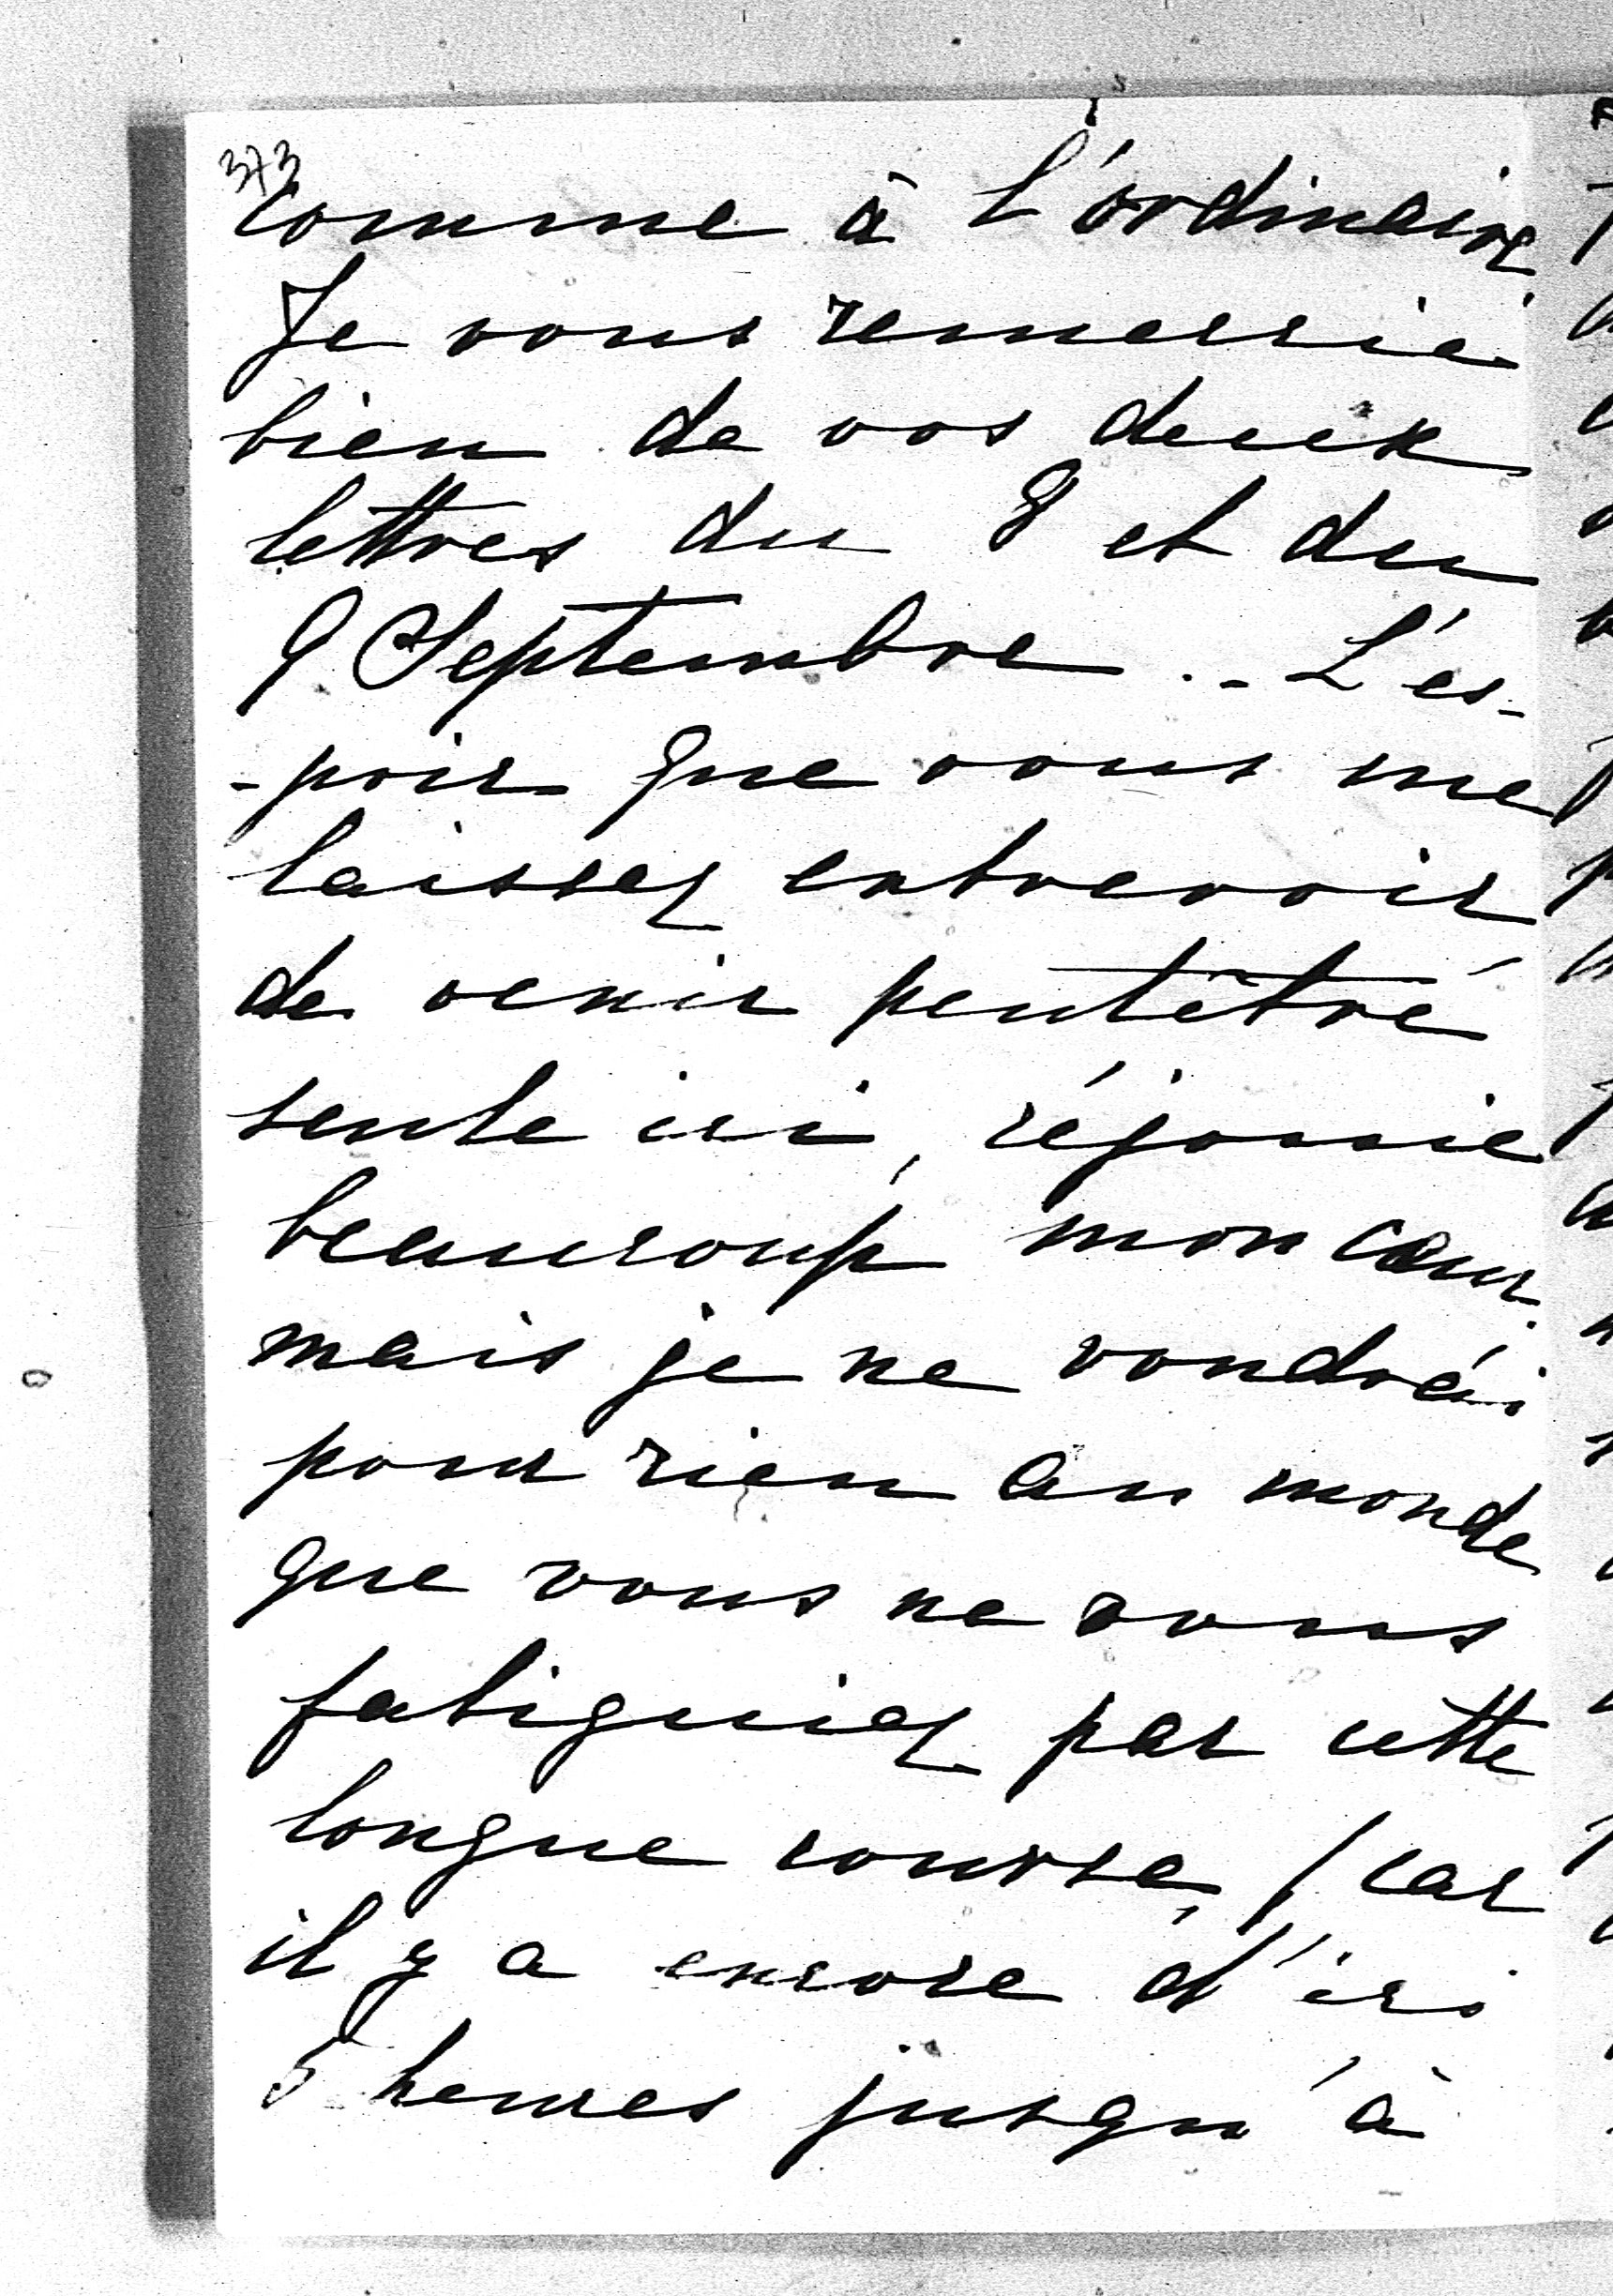 373
comme à L'ordinaire.
Je vous remercie
bien de vos deux
lettres du 8 et du
9 Septembre. - L'es-
-poir que vous me
laissez entrevoir
de venir peutêtre
seule ici, réjouie
beaucoup mon cœur
mais je ne voudrai
pour rien au monde
que vous ne vous
fatiguiez par cette
longue course, (car
il y a encore d'ici
5 heures jusqu'à